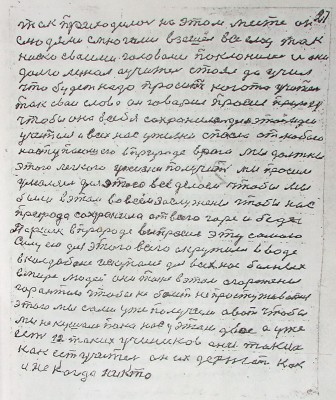 27
так приходилось на этом месте он
с людями с многими в земли все они так
ниско своими головами поклонилися и они
долго меня учител стоял да учил
что будет надо просит кого то учител
так свои слово он говорил просил природу
чтобы она в себя сохранила для этого идеи
учителя и всех нас у жизни спасла от любого
наступающего в природе врага мы должны
этого легкого у жизни получит мы просим
умоляем для этого все делаем чтобы мы
были в этом во всём заслужены чтобы нас
природа сохранила от всего горе и беды
Паршик в природе выпросил эту самою
силу его для этого всего окружили в воде
в холодной искупали для всех нас больных
в мире людей они тоже в этом огорожены
гарантии чтобы не болит не простуживатся
этого мы сами уже получаем а вот чтобы
мы не кушали пока нас у этом двое а уже
есть 12 таких учеников они такие
как есть учител он их держит как
и некогда никто